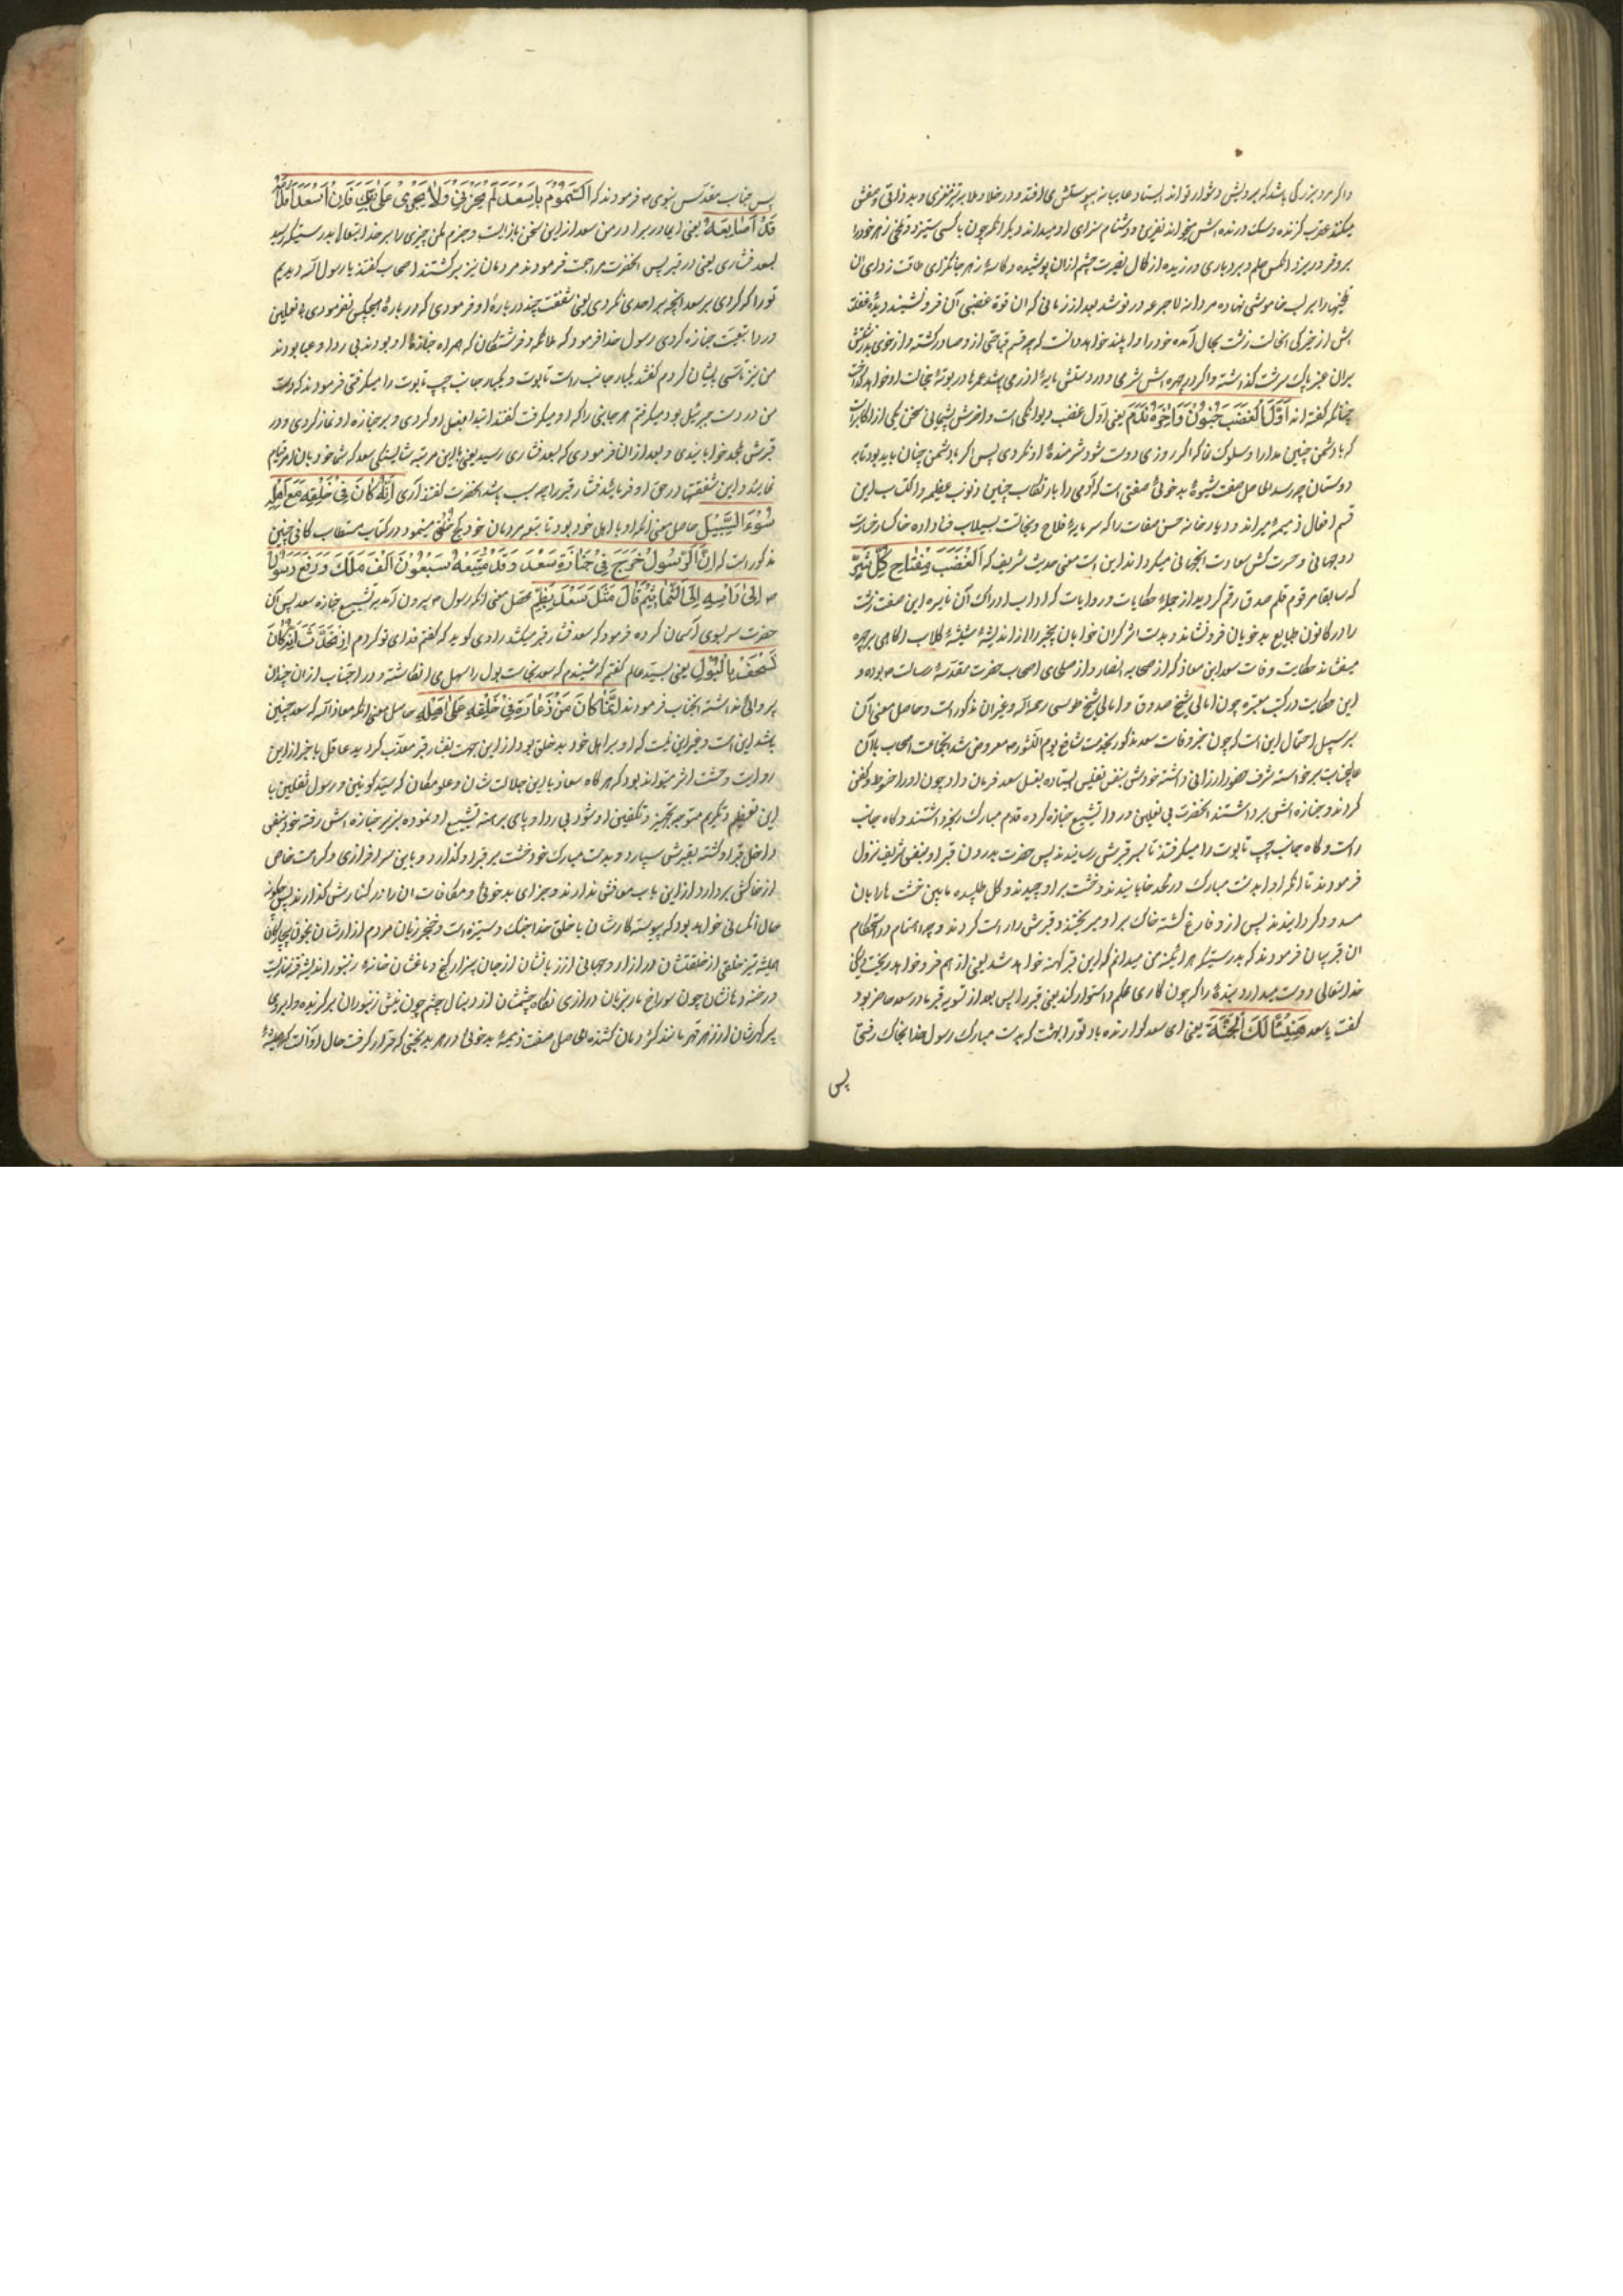 واکر مرد بزرکی باشد که برویش دشوار تواند ایستاد عایبانه بپوستش می افتد و در خلا و ملا
میکند عقرب کزنده و سک درنده اش میخواند نفرین و دشنام سزای او میداند دیکر انکه چون با کسی ستیزد و تلخی زهر خود را
برو فرو ریزد انکس حلم و بردباری ورزیده از کمال بصیرت چشم ازان پوشیده و کاسهٔ زهر جانکزای طاقت زدای ان
تلخیها را بر لب خاموشی نهاده مردانه لاجرعه در نوشد بعد از زمانی که ان قوة غضبی آن فرو نشیند دیدهٔ غفلة
اش از خیرکی انحالت زشت بحال آمده خود را و اپسند خواهد دانست که چه قسم قباحتی ازو صادر کشته و از خوی بد
بران عنبر پاک سرشت کذاشته و اکر در چهره اش شرمی و در دستش مایهٔ ازرمی باشد عمرها در بوتهٔ خجالت او خواهد کداخت
چنانکه کفته اند اَوَّلُ الْغَضَبِ جُنُونٌ وَ اٰخِرُهُ نَدَمٌ یعنی اول غضب دیوانکی است و اخرش پشیمانی سخن یکی از اکابر است
که با دشمن چنین مدارا و سلوک نما که اکر روزی دوست شود شرمندهٔ او نکردی پس اکر با دشمن چنان باید بود تا به
دوستان چه رسد الحاصل صفت شیوهٔ بد خوئی صفتی است که آدمی را بارتکاب چنین ذنوب عظیمه و اکتساب این
قسم افعال ذمیمه میراند و دیارخانه حسن صفات را که سرمایهٔ فلاح و نجاتست بسیلاب فنا داده خاکسار خسارت
دو جهانی و حسرت کش سعادت انجهانی میکرداند این است معنی حدیث شریف که اَلْغَضَبُ مِفْتَاحُ کُلِّ شَرٍّ
که سابقا مرقوم قلم صدق رقم کردید از جملهٔ حکایات و روایات که اداب ادراک آن نایره این صفت زشت
را در کانون طبایع بدخویان فرو نشاند و بدست اثر کران خوابان بیخبر را از اندیشهٔ شیشهٔ کلاب اکاهی بر چهره
میفشاند حکایت وفات سعد ابن معاذ که از صحابه انصار و از صلحای اصحاب حضرت مقدسهٔ رسالت ص بوده و
این حکایت در کتب معتبره چون امالی شیخ صدوق و امالی شیخ طوسی رحمه الله و غیران مذکور است و حاصل معنی آن
بر سبیل احتمال این است که چون خبر وفات سعد مذکور بخدمت شافع یوم النشور ص معروض شد انجناب با اصحاب بلا آن
عالیجناب برخواسته شرف حضور ارزانی داشته خودش بنفس نفیس ایستاده بغسل سعد فرمان داد چون او را حنوط و کفن
کردند و جنازه اش برداشتند انحضرت بی نعلین و ردا تشییع جنازه کرده قدم مبارک رنجه داشتند و کاه جانب
راست و کاه جانب چپ تابوت را میکرفتند تا بسر قبرش رسانیدند پس حضرت بدرون قبر او بنفس شریف نزول
فرمودند تا انکه او را بدست مبارک در لحد خابانیدند و خشت بر او چیدند و کل طلبیده مابین خشت ها را بان
مسدود کردانیدند پس از و فارغ کشته خاک بر او میریختند و قبرش را راست کردند و چه اهتمام در استحکام
ان قبر پیان فرمودند که بدرستیکه هر اینه من میدانم که این قبر کهنه خواهد شد یعنی از هم فرو خواهد ریخت لیکن
خدایتعالی دوست میدارد بندهٔ را که چون کاری محکم و استوار کند یعنی قبر را پس بعد از تسویه قبر مادر سعد حاضر بود
کفت یا سعد هَنِیئًا لَکَ الْجَنَّةُ یعنی ای سعد کوارنده باد تو را بهشت که بدست مبارک رسول خدا بخاک رفتی
پس
پس جناب مقدس نبوی ص فرمودند که یَا اُمَّ سَعْدٍ
قَدْ اَصٰابَتْهُ یعنی ایمادر برادر من سعد ازین سخن بازایست و جزم مکن چیزی را بر خدایتعالی بدرستیکه رسید
بسعد فشاری یعنی در قبر پس انحضرت مراجعت فرمودند مردمان نیز برکشتند اصحاب کفتند یا رسول الله دیدیم
تو را که کردی بر سعد انچه بر احدی نکردی یعنی شفقت چند در بارهٔ او فرمودی که در بارهٔ هیچکس نفرمودی بی نعلین
و ردا تبعیت جنازه کردی رسول خدا فرمود که ملائکه و فرشتکان که همراه جنازهٔ او بودند بی ردا و عبا بودند
من نیز تاسی بایشان کردم کفتند یکبار جانب راست تابوت و یکبار جانب چپ تابوت را میکرفتی فرمودند که دست
من در دست جبرئیل بود میکرفتم هر جائی را که او میکرفت کفتند ابتدا بغسل او کردی و بر جنازه او نماز کردی و در
قبرش بلحد خوابانیدی و بعد از ان فرمودی که بسعد فشاری رسید یعنی با این مرتبه شایستکی سعد که شما خود بان امر قیام
نمایند و این شفقتها در حق او فرمائید فشار قبر را چه سبب باشد انحضرت کفتند آری اِنَّهُ کَانَ فِی خُلُقِهِ مَعَ اَهْلِهِ
سُوءَ السَّبِیلِ حاصل معنی انکه او با اهل خود بود تا بتو مردمان خود کج خلقی مینمود و در کتاب مستطاب کافی چنین
مذکور است که اِنَّ الرَّسُولَ خَرَجَ فِی جَنَازَةِ سَعْدٍ وَ قَدْ شَیَّعَهُ سَبْعُونَ اَلْفَ مَلَکٍ وَ رَفَعَ رَسُولُ
ص الی رَاْسِهِ اِلَی السَّمَاءِ ثُمَّ قَالَ مِثْلُ سَعْدٍ یُضَمُّ محصل معنی انکه رسول ص بیرون آمد به تشییع جنازه سعد پس آن
حضرت سر بسوی آسمان کرده فرمود که سعد فشار قبر میکشد راوی کوید که کفتم فدای تو کردم اِنَّا نُحَدِّثُ اَنَّهُ کَانَ
یَسْتَخِفُّ بِالْبَوْلِ یعنی بسید عالم کفتم که شنیدم که سعد نجاست بول را سهل می انکاشته و در اجتناب ازان چندان
پروائی نداشته انجناب فرمودند اِنَّمَا کَانَ مِنْ زَعَارَةٍ فِی خُلُقِهِ عَلَی اَهْلِهِ حاصل معنی انکه معاذ الله که سعد چنین
باشد این است و غیر این نیست که او بر اهل خود بد خلق بود از این جهت بفشار قبر معذب کردید عاقل با خبر از این
روایت وحشت اثر میتواند بود که هر کاه سعاذ با این جلالت شان و علو مکان که سید کونین و رسول ثقلین با
این تعظیم و تکریم متوجه تجهیز و تکفین او شود بی ردا و پای برهنه تشییع او نموده بزیر جنازه اش رفته خود بنفس
داخل قبر او کشته بقبرش سپارد و بدست مبارک خود خشت بر قبر او کذارد و باین سرافرازی و کرامت خاص
از خاکش بردارد از این باب معافش ندارند و جزای بدخوئی و مکافات ان را در کنارش کذارند پس چکونه
حال انکسانی خواهد بود که پیوسته کارشان با خلق خدا جنک و ستیزه است و خنجر زبان مردم ازارشان بخون
همیشه تیز خلقی از خلقتشان در ازار و جهانی از زبانشان از جان بیزار کنج دماغشان خانهٔ زنبور اندیشه
و رخنه دهانشان چون سوراخ مار بزبان درازی نکاه چشمشان از دنبال چشم چون نیش زنبوران بر کزنده و ابروی
پر کرهشان از زهر قهر مانند کژدمان کشنده الحاصل صفت ذمیمهٔ بدخوئی در هر بدبختی که قرار کرفت حال او آنست که همیشهٔ